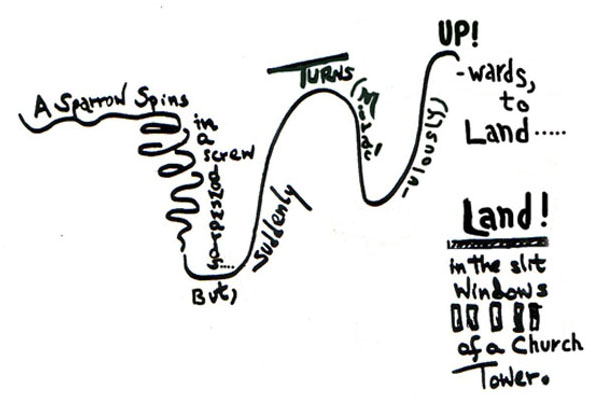 A Sparrow Spins
in
a
screw
downwards....
But,
suddenly
TURNS
(Mirac'
-ulously)
UP!
-wards,
to
Land.....
Land!
in the slit
Windows
of a Church
Tower.